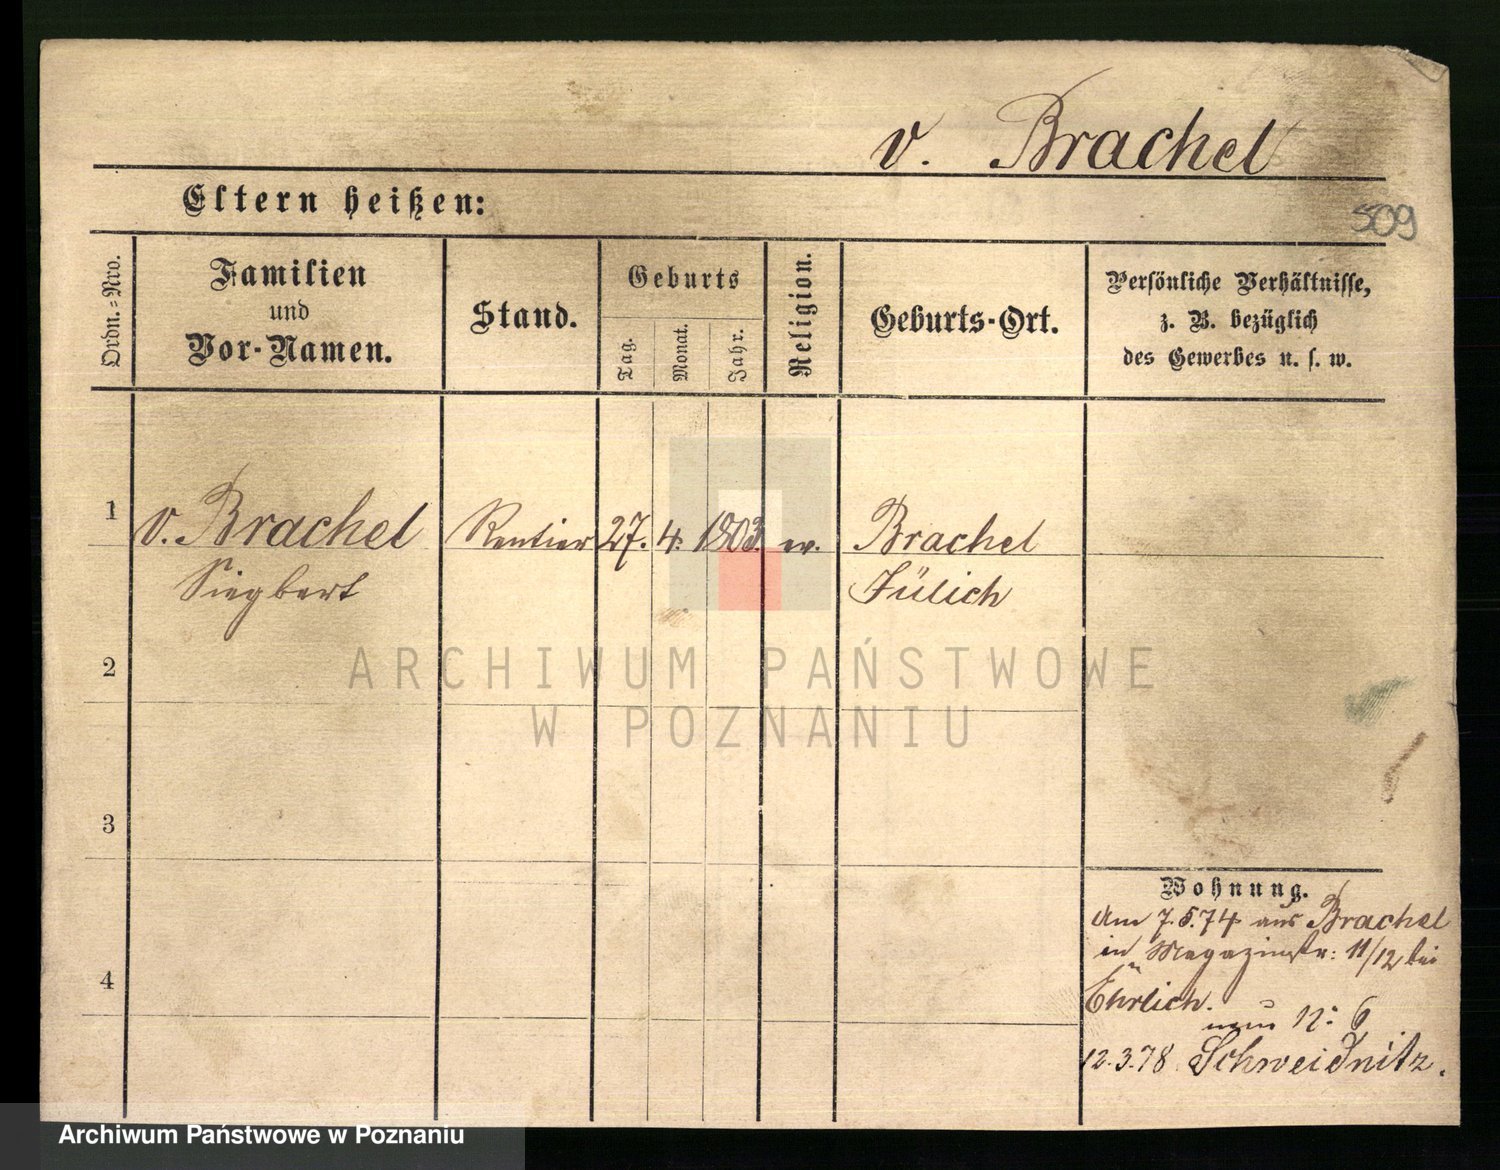 v. Brachel
Eltern heißen:
509
Ordn.=Nro.
Familien
und
Vor-Namen.
Stand.
Geburts
Tag.
Monat.
Jahr.
Religion.
Geburts-Ort.
Persönliche Verhältnisse,
z. B. bezüglich
des Gewerbes u. s. w.
1
v. Brachel
Siegbert
Rentier
27.
4.
1803.
ev.
Brachel
Jülich
2
3
4
Wohnung.
Am 7.5.74 aus Brachel
in Magazinstr: 11/12 bei
Ehrlich.
neun N: 6
12.3.78 Schweidnitz.
ARCHIWUM PAŃSTWOWE
W POZNANIU
Archiwum Państwowe w Poznaniu